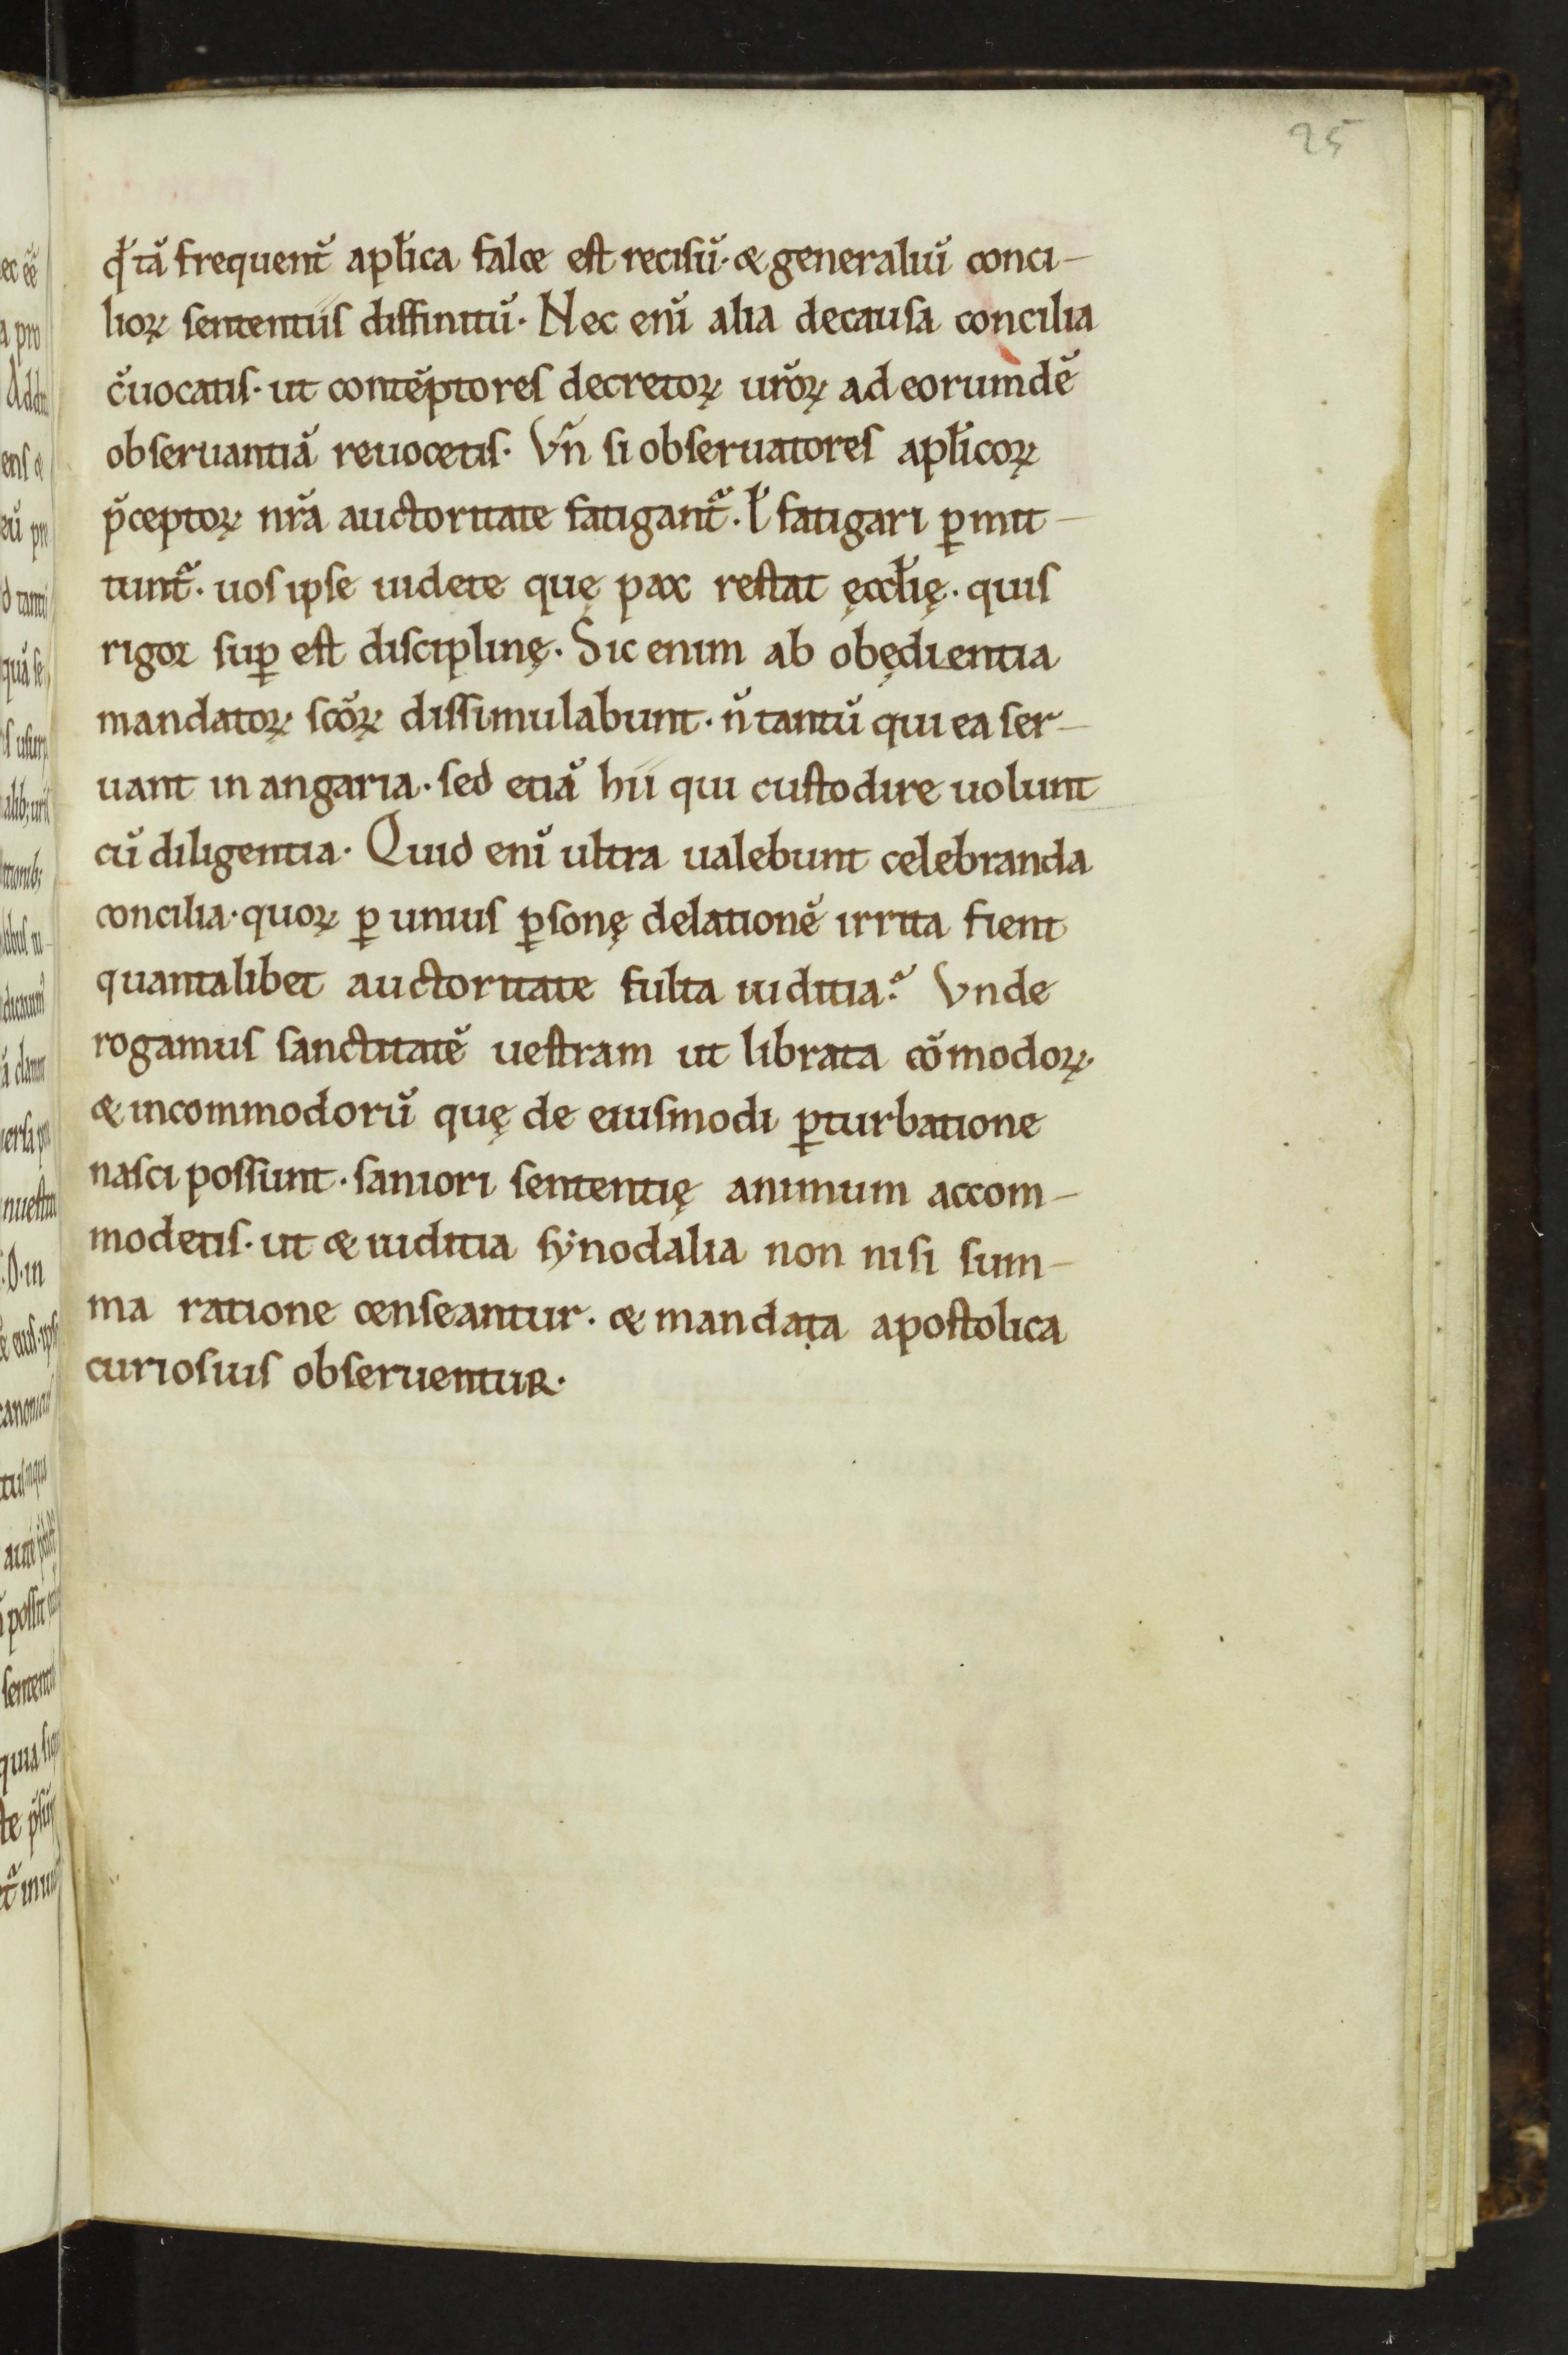 25
ꝙ tā frequent̄ apl̄ica falce est recisū· & generaliū conci-
lioꝝ sententiis diffinitū· Nec enī alia decausa concilia
c̄uocatis· ut contēptores decretoꝝ ur̄oꝝ ad eorumdē
obseruantiā reuocetis· Vn̄ si obseruatores apl̄icoꝝ
p̄ceptoꝝ nr̄a auctoritate fatigant᷑· ł fatigari ꝑmit-
tunt᷑· uos ipse uidete quę pax restat ęccl̄ię· quis
rigor suꝑ est disciplinę· Sic enim ab obędientia
mandatoꝝ sc̄oꝝ dissimulabunt· n̄ tantū qui ea ser-
uant in angaria· sed etiā hii qui custodire uolunt
cū diligentia· Quid enī ultra ualebunt celebranda
concilia· quoꝝ ꝑ unius ꝑsonę delationē irrita fient
quantalibet auctoritate fulta iuditia? Vnde
rogamus sanctitatē uestram ut librata cōmodoꝝ
& incommodorū quę de eiusmodi ꝑturbatione
nasci possunt· saniori sententię animum accom-
modetis· ut & iuditia sẏnodalia non nisi sum-
ma ratione censeantur· & mandata apostolica
curiosius obseruentuR·